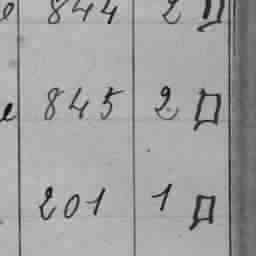 844 2
845 2
201 1